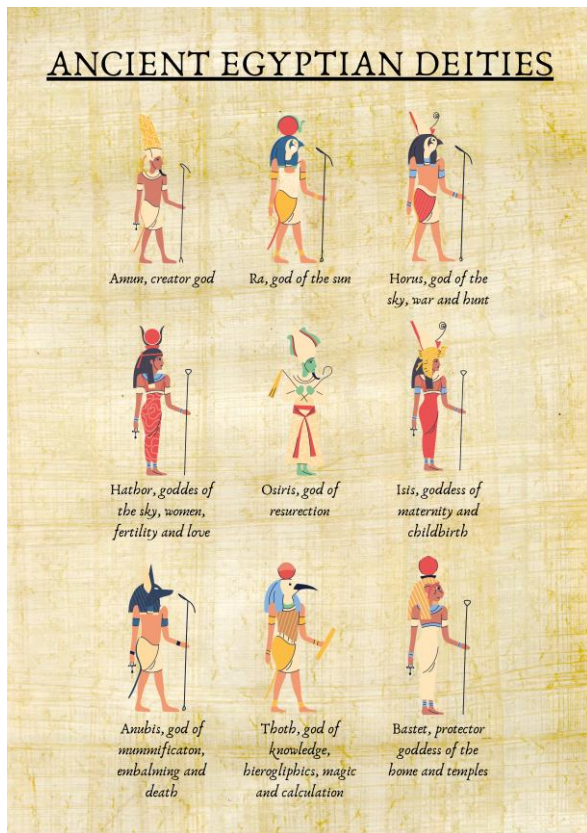 ANCIENT EGYPTIAN DEITIES
Amun, creator god
Ra, god of the sun
Horus, god of the
sky, war and hunt
Hathor, goddes of
the sky, women,
fertility and love
Osiris, god of
resurection
Isis, goddess of
maternity and
childbirth
Anubis, god of
mummificaton,
embalming and
death
Thoth, god of
knowledge,
hierogliphics, magic
and calculation
Bastet, protector
goddess of the
home and temples